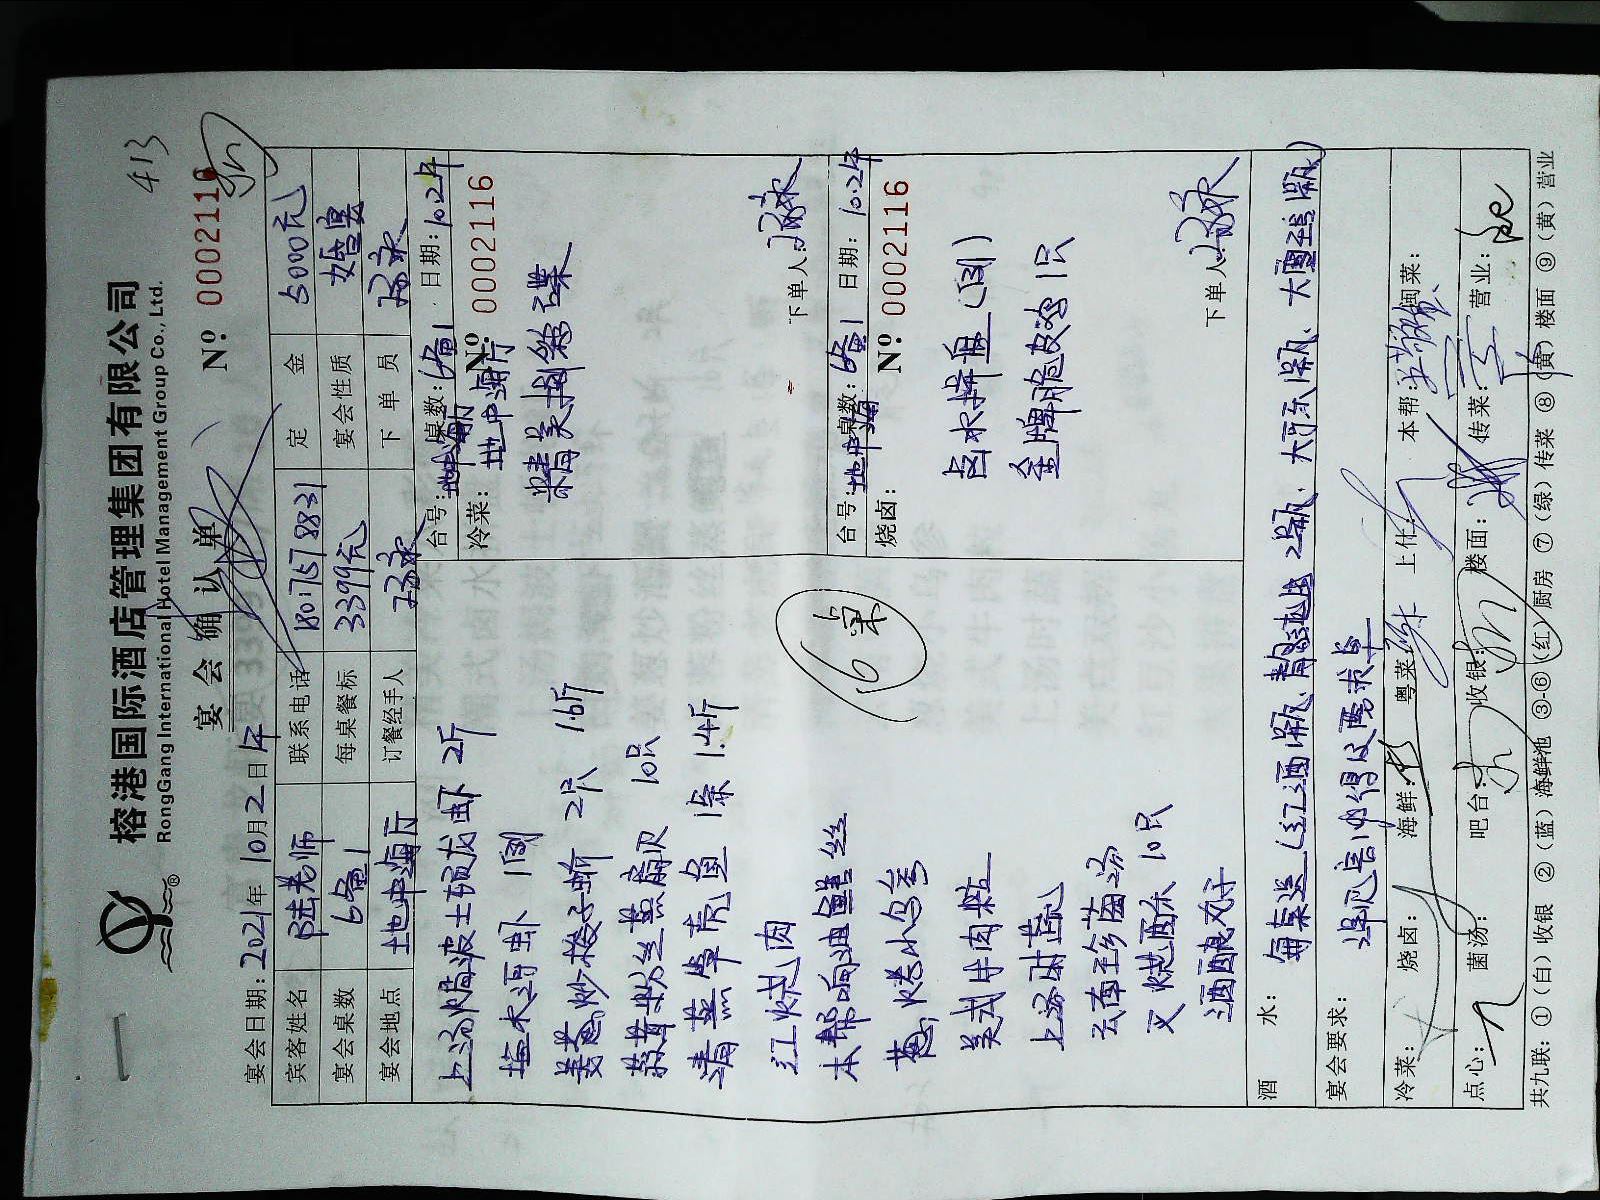 413
榕港国际酒店管理集团有限公司
RongGang International Hotel Management Group Co., Ltd.
宴会确认单
№ 0002116
宴会日期：2021年10月2日
宾客姓名 陆老师 联系电话 18017578831 定金 5000元
宴会桌数 6备1 每桌餐标 3399元 宴会性质 婚宴
宴会地点 地中海厅 订餐经手人 下单员
上汤焗波士顿龙虾 2斤
盐水河虾 1例
姜葱炒梭子蟹 2只 1.6斤
蒜茸粉丝蒸扇贝 10只
清蒸章壳鱼 1条 1.4斤
红烧肉
本帮响油鳝丝
葱烧小乌参
美式牛肉粒
上汤时蔬
云南珍菌汤
叉烧酥 10只
酒酿丸子
6桌
台号：地中海厅 桌数：6备1 日期：10.2午
冷菜： № 0002116
地中海厅
精美捌彩碟
下单人：
台号：地中海 桌数：6备1 日期：10.2午
烧卤： № 0002116
卤水拼盘（例）
金牌脆皮鸡 1只
下单人：
酒水： 每桌送（红酒1瓶、青岛纯生2瓶、大可乐1瓶、大雪碧1瓶）
宴会要求：
冷菜： 烧卤： 海鲜： 粤菜： 上什： 本帮： 闽菜：
点心： 菌汤： 吧台： 收银： 楼面： 传菜： 营业：
共九联：①（白）收银 ②（蓝）海鲜池 ③-⑥（红）厨房 ⑦（绿）传菜 ⑧（黄）楼面 ⑨（黄）营业